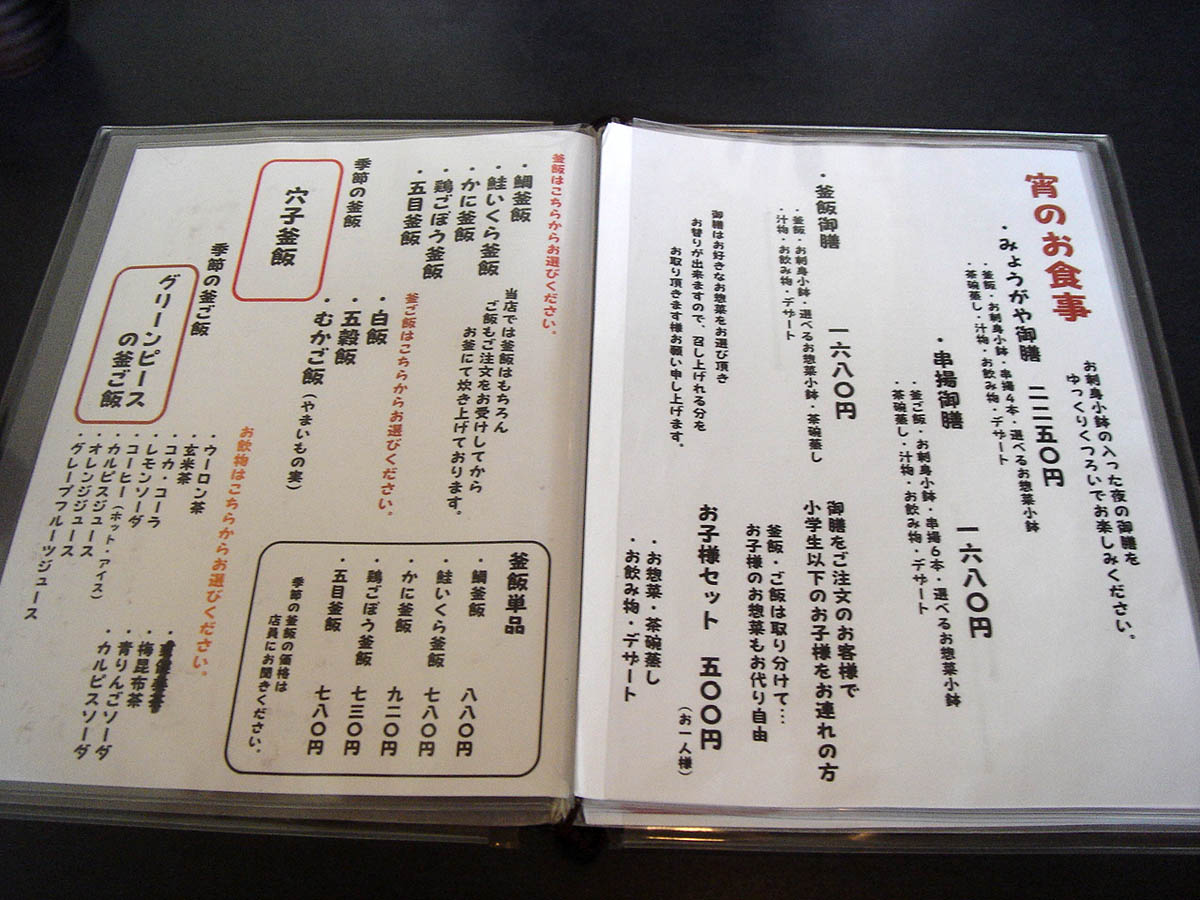 宵のお食事
お刺身小鉢の入った夜の御膳を
ゆっくりくつろいでお楽しみください。
・みょうがや御膳 二二五〇円
・釜飯・お刺身小鉢・串揚4本・選べるお惣菜小鉢
・茶碗蒸し・汁物・お飲み物・デザート
・串揚御膳 一六八〇円
・釜ご飯・お刺身小鉢・串揚6本・選べるお惣菜小鉢
・茶碗蒸し・汁物・お飲み物・デザート
・釜飯御膳 一六八〇円
・釜飯・お刺身小鉢・選べるお惣菜小鉢・茶碗蒸し
・汁物・お飲み物・デザート
御膳はお好きなお惣菜をお選び頂き
お替りが出来ますので、召し上げれる分を
お取り頂きます様お願い申し上げます。
御膳をご注文のお客様で
小学生以下のお子様をお連れの方
釜飯・ご飯は取り分けて…
お子様のお惣菜もお代り自由
お子様セット 五〇〇円
(お一人様)
・お惣菜・茶碗蒸し
・お飲み物・デザート
釜飯はこちらからお選びください。
・鯛釜飯
・鮭いくら釜飯
・かに釜飯
・鶏ごぼう釜飯
・五目釜飯
当店では釜飯はもちろん
ご飯もご注文をお受けしてから
お釜にて炊き上げております。
季節の釜飯
穴子釜飯
釜ご飯はこちらからお選びください。
・白飯
・五穀飯
・むかご飯(やまいもの実)
季節の釜ご飯
グリーンピース
の釜ご飯
お飲物はこちらからお選びください。
・ウーロン茶
・玄米茶
・コカ・コーラ
・レモンソーダ
・コーヒー(ホット・アイス)
・カルピスジュース
・オレンジジュース
・グレープフルーツジュース
・梅昆布茶
・青りんごソーダ
・カルピスソーダ
釜飯単品
・鯛釜飯 八八〇円
・鮭いくら釜飯 七八〇円
・かに釜飯 九二〇円
・鶏ごぼう釜飯 七三〇円
・五目釜飯 七八〇円
季節の釜飯の価格は
店員にお聞きください。